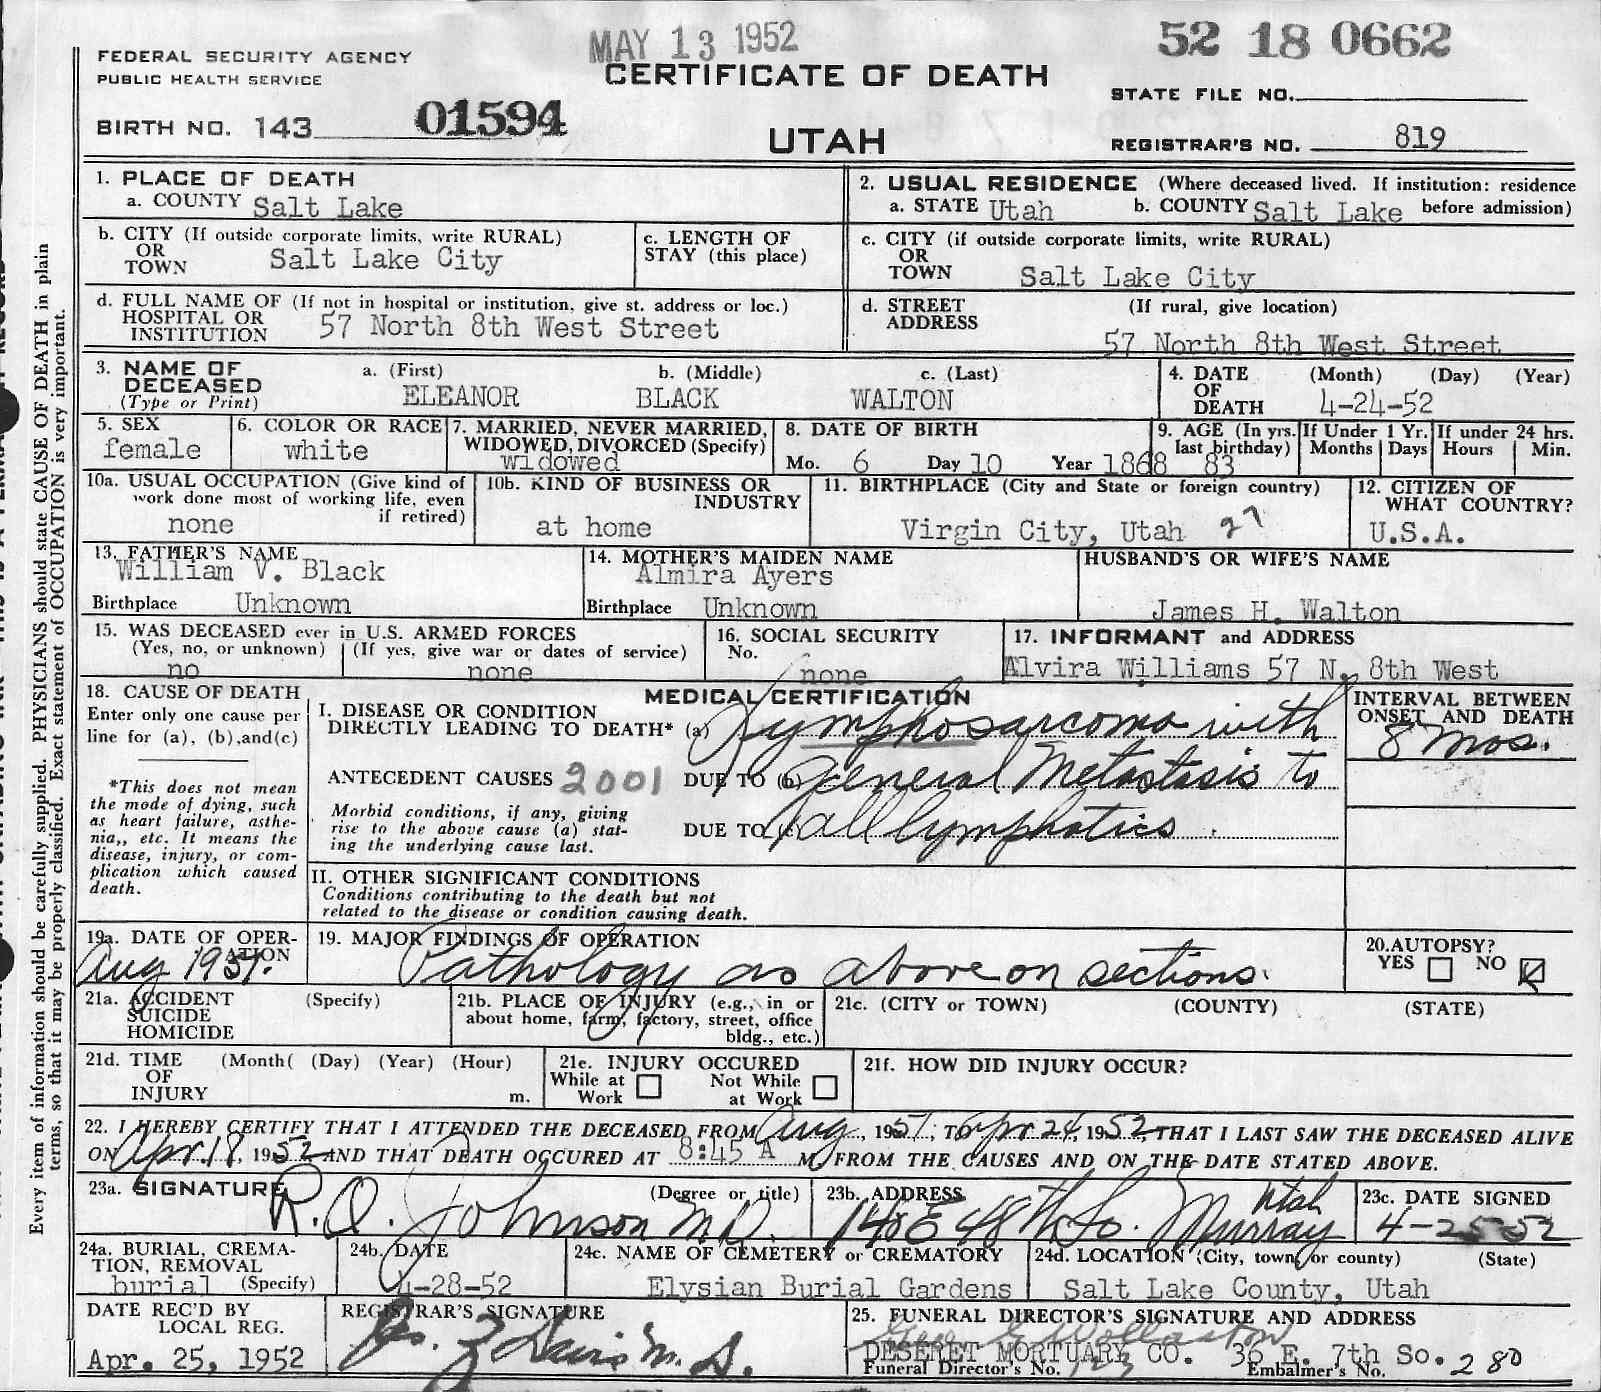 MAY 13 1952
52 18 0662
FEDERAL SECURITY AGENCY
PUBLIC HEALTH SERVICE
CERTIFICATE OF DEATH
STATE FILE NO.
BIRTH NO. 143 01594
UTAH
REGISTRAR'S NO. 819
1. PLACE OF DEATH
a. COUNTY Salt Lake
2. USUAL RESIDENCE (Where deceased lived. If institution: residence
a. STATE Utah b. COUNTY Salt Lake before admission)
b. CITY (If outside corporate limits, write RURAL)
OR
TOWN Salt Lake City
c. LENGTH OF
STAY (this place)
c. CITY (if outside corporate limits, write RURAL)
OR
TOWN Salt Lake City
d. FULL NAME OF (If not in hospital or institution, give st. address or loc.)
HOSPITAL OR
INSTITUTION 57 North 8th West Street
d. STREET (If rural, give location)
ADDRESS
57 North 8th West Street
3. NAME OF a. (First) b. (Middle) c. (Last)
DECEASED
(Type or Print) ELEANOR BLACK WALTON
4. DATE (Month) (Day) (Year)
OF
DEATH 4-24-52
5. SEX
female
6. COLOR OR RACE
white
7. MARRIED, NEVER MARRIED,
WIDOWED, DIVORCED (Specify)
widowed
8. DATE OF BIRTH
Mo. 6 Day 10 Year 1868
9. AGE (In yrs. If Under 1 Yr. If under 24 hrs.
last birthday) Months Days Hours Min.
83
10a. USUAL OCCUPATION (Give kind of
work done most of working life, even
if retired)
none
10b. KIND OF BUSINESS OR
INDUSTRY
at home
11. BIRTHPLACE (City and State or foreign country)
Virgin City, Utah 27
12. CITIZEN OF
WHAT COUNTRY?
U.S.A.
13. FATHER'S NAME
William V. Black
Birthplace Unknown
14. MOTHER'S MAIDEN NAME
Almira Ayers
Birthplace Unknown
HUSBAND'S OR WIFE'S NAME
James H. Walton
15. WAS DECEASED ever in U.S. ARMED FORCES
(Yes, no, or unknown) (If yes, give war or dates of service)
no none
16. SOCIAL SECURITY
No.
none
17. INFORMANT and ADDRESS
Alvira Williams 57 N. 8th West
18. CAUSE OF DEATH
Enter only one cause per
line for (a), (b),and(c)
*This does not mean
the mode of dying, such
as heart failure, asthe-
nia,, etc. It means the
disease, injury, or com-
plication which caused
death.
MEDICAL CERTIFICATION
I. DISEASE OR CONDITION
DIRECTLY LEADING TO DEATH* (a) Lymphosarcoma with
ANTECEDENT CAUSES 2001 DUE TO (b) general Metastasis to
Morbid conditions, if any, giving
rise to the above cause (a) stat-
ing the underlying cause last.
DUE TO all lymphatics.
INTERVAL BETWEEN
ONSET AND DEATH
8 mos.
II. OTHER SIGNIFICANT CONDITIONS
Conditions contributing to the death but not
related to the disease or condition causing death.
19a. DATE OF OPER-
ATION
Aug 1951.
19. MAJOR FINDINGS OF OPERATION
Pathology as above on sections.
20. AUTOPSY?
YES NO
21a. ACCIDENT (Specify)
SUICIDE
HOMICIDE
21b. PLACE OF INJURY (e.g., in or
about home, farm, factory, street, office
bldg., etc.)
21c. (CITY or TOWN) (COUNTY) (STATE)
21d. TIME (Month( (Day) (Year) (Hour)
OF
INJURY m.
21e. INJURY OCCURED
While at Not While
Work at Work
21f. HOW DID INJURY OCCUR?
22. I HEREBY CERTIFY THAT I ATTENDED THE DECEASED FROM Aug, 1951, TO Apr 24, 1952, THAT I LAST SAW THE DECEASED ALIVE
ON Apr. 18, 1952 AND THAT DEATH OCCURED AT 8:45 A M, FROM THE CAUSES AND ON THE DATE STATED ABOVE.
23a. SIGNATURE (Degree or title)
R. O. Johnson M.D.
23b. ADDRESS
148 E 48th So. Murray Utah
23c. DATE SIGNED
4-25-52
24a. BURIAL, CREMA-
TION, REMOVAL
burial (Specify)
24b. DATE
4-28-52
24c. NAME OF CEMETERY or CREMATORY
Elysian Burial Gardens
24d. LOCATION (City, town, or county) (State)
Salt Lake County, Utah
DATE REC'D BY
LOCAL REG.
Apr. 25, 1952
REGISTRAR'S SIGNATURE
Davis M.D.
25. FUNERAL DIRECTOR'S SIGNATURE AND ADDRESS
DESERET MORTUARY CO. 36 E. 7th So.
Funeral Director's No. Embalmer's No. 280
Every item of information should be carefully supplied. PHYSICIANS should state CAUSE OF DEATH in plain
terms, so that it may be properly classified. Exact statement of OCCUPATION is very important.